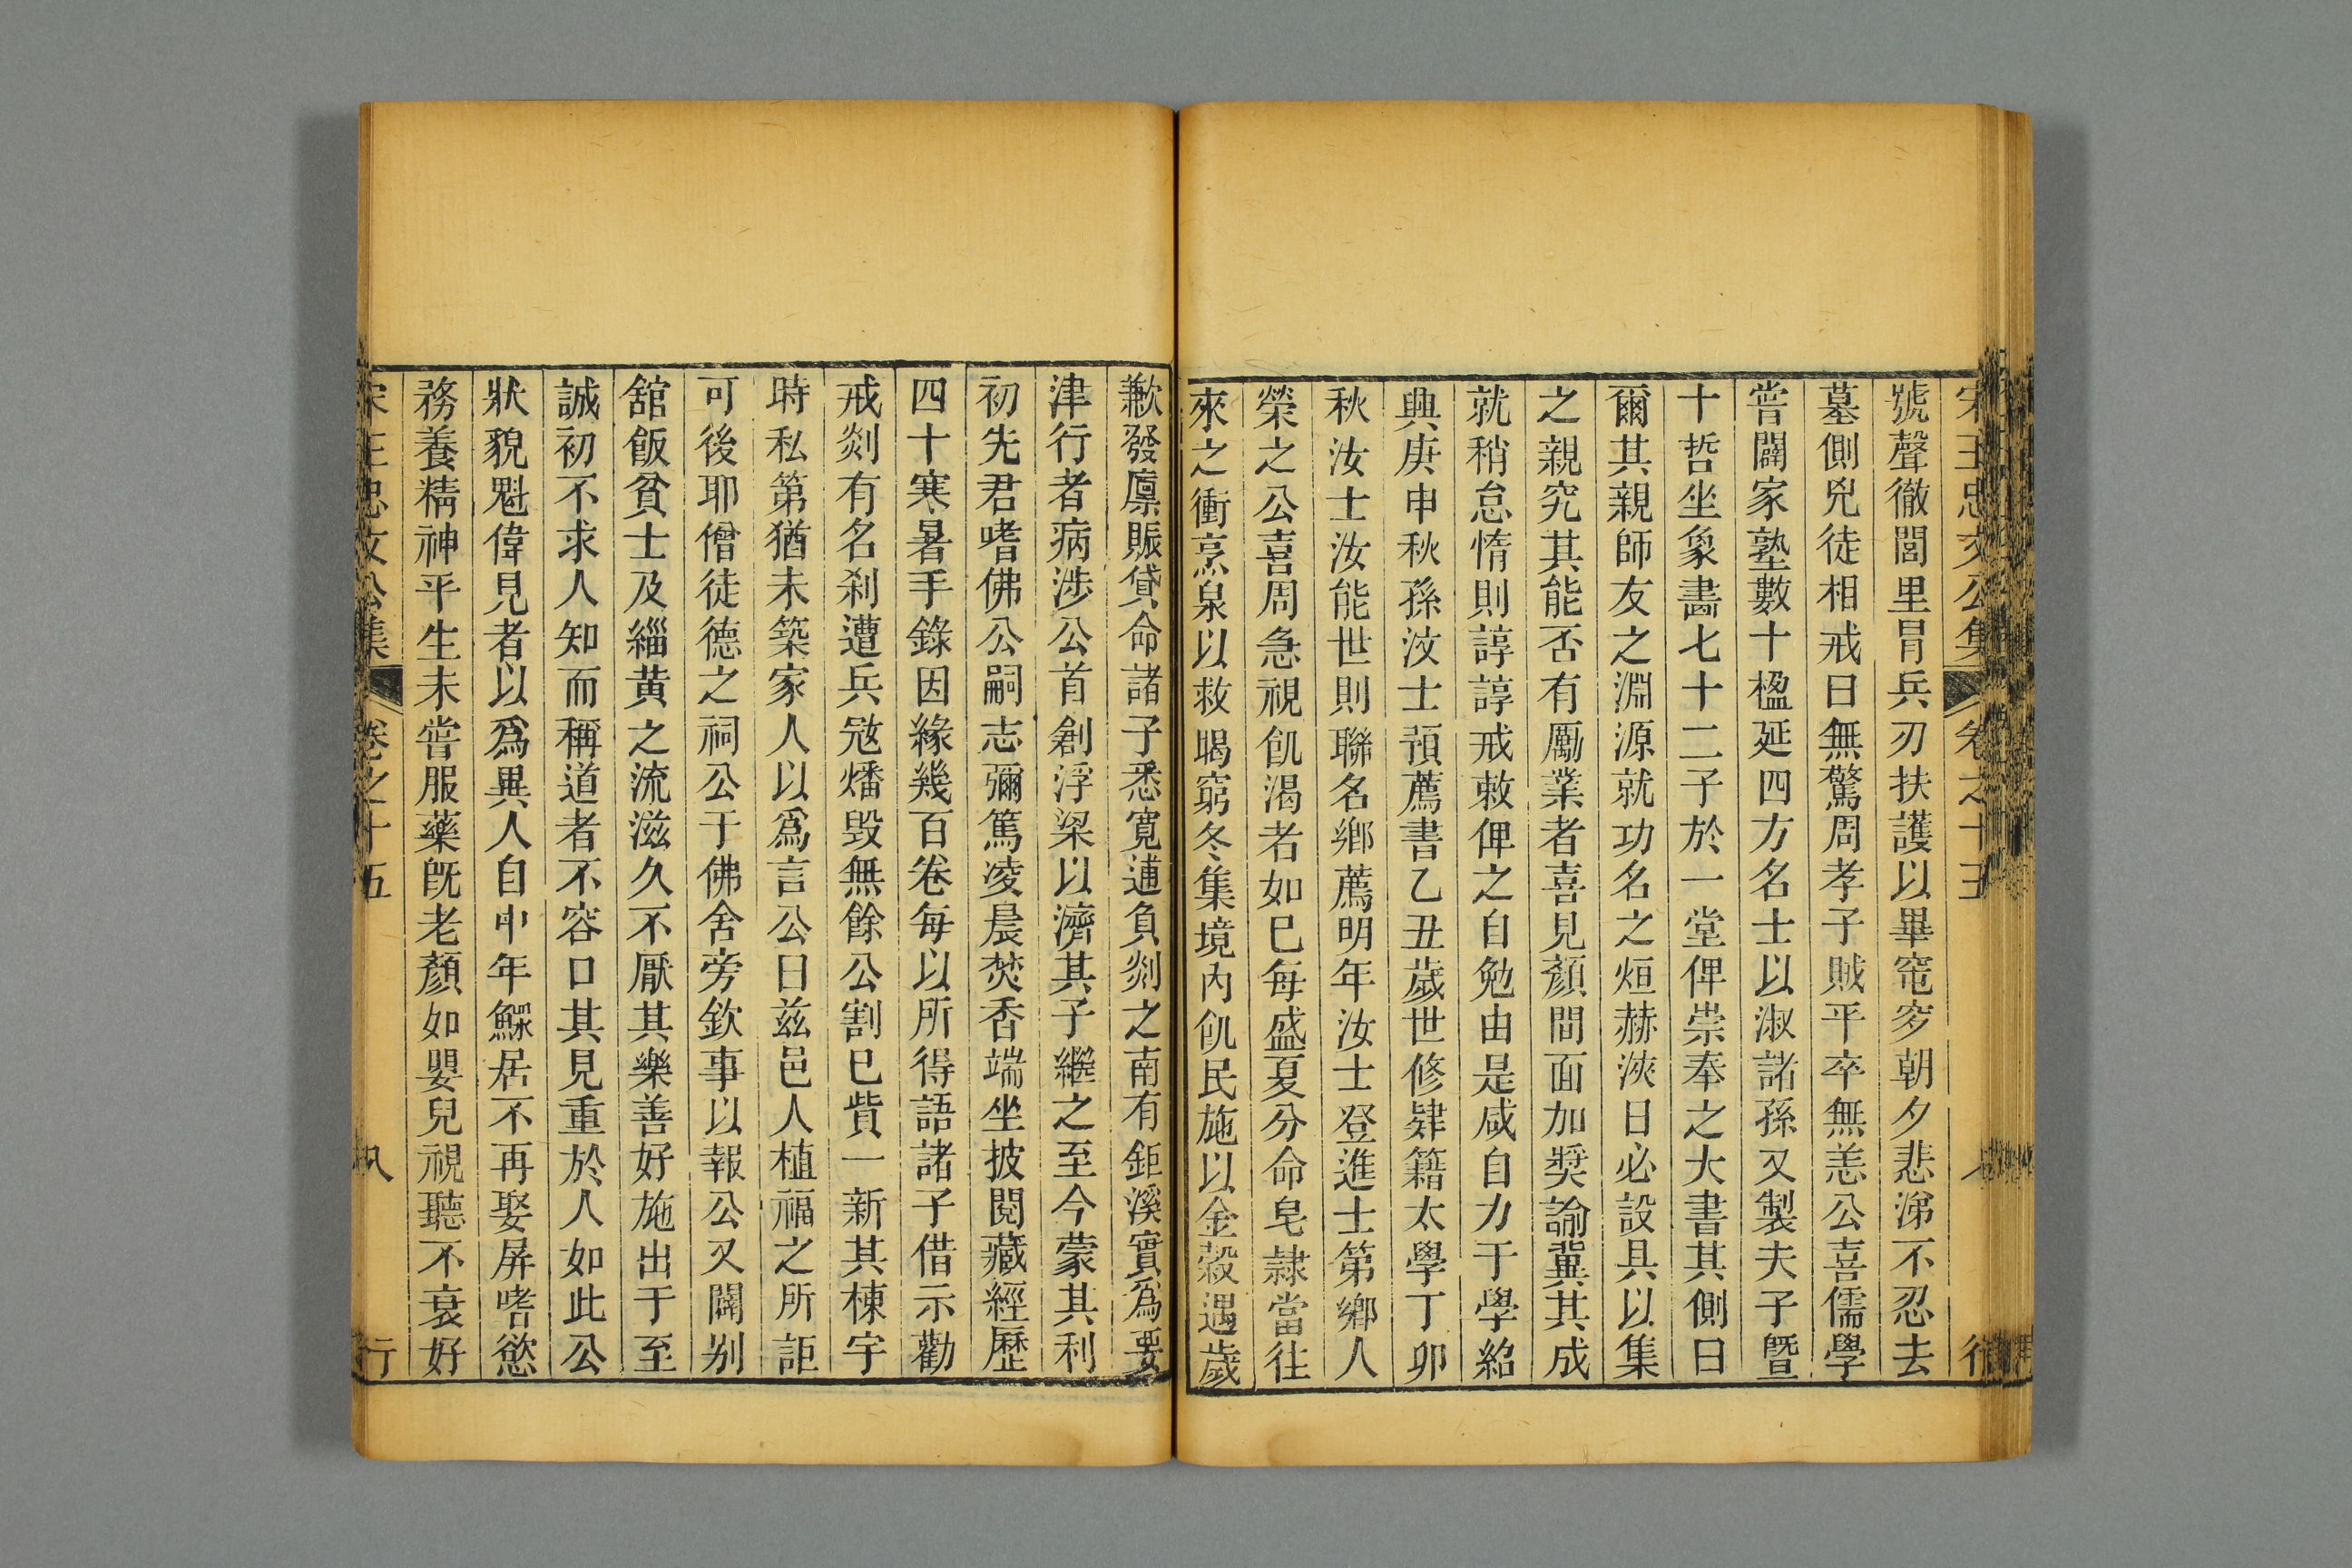 宋王忠文公集 卷之十五
號聲徹閭里冒兵刃扶護以畢窀穸朝夕悲涕不忍去
墓側兇徒相戒曰無驚周孝子賊平卒無恙公喜儒學
嘗闢家塾數十楹延四方名士以淑諸孫又製夫子暨
十哲坐象畵七十二子於一堂俾崇奉之大書其側曰
爾其親師友之淵源就功名之烜赫浹日必設具以集
之親究其能否有勵業者喜見顏間面加奬諭冀其成
就稍怠惰則諄諄戒敕俾之自勉由是咸自力于學紹
興庚申秋孫汶士預薦書乙丑歲世修肄籍太學丁卯
秋汝士汝能世則聯名鄉薦明年汝士登進士第鄉人
榮之公喜周急視飢渴者如巳每盛夏分命皂隷當往
來之衝烹泉以救暍窮冬集境內飢民施以金榖遇歲
歉發廩賑貸命諸子悉寛逋負剡之南有鉅溪實爲要
津行者病涉公首創浮梁以濟其子繼之至今蒙其利
初先君嗜佛公嗣志彌篤凌晨焚香端坐披閱藏經歷
四十寒暑手錄因緣幾百卷每以所得語諸子借示勸
戒剡有名刹遭兵冦燔毀無餘公割巳貲一新其棟宇
時私第猶未築家人以爲言公曰兹邑人植福之所詎
可後耶僧徒德之祠公于佛舍旁欽事以報公又闢别
舘飯貧士及緇黄之流滋久不厭其樂善好施出于至
誠初不求人知而稱道者不容口其見重於人如此公
狀貌魁偉見者以爲異人自中年鰥居不再娶屏嗜慾
務養精神平生未嘗服藥旣老顏如嬰兒視聽不衰好
宋王忠文公集 卷之十五 八 行